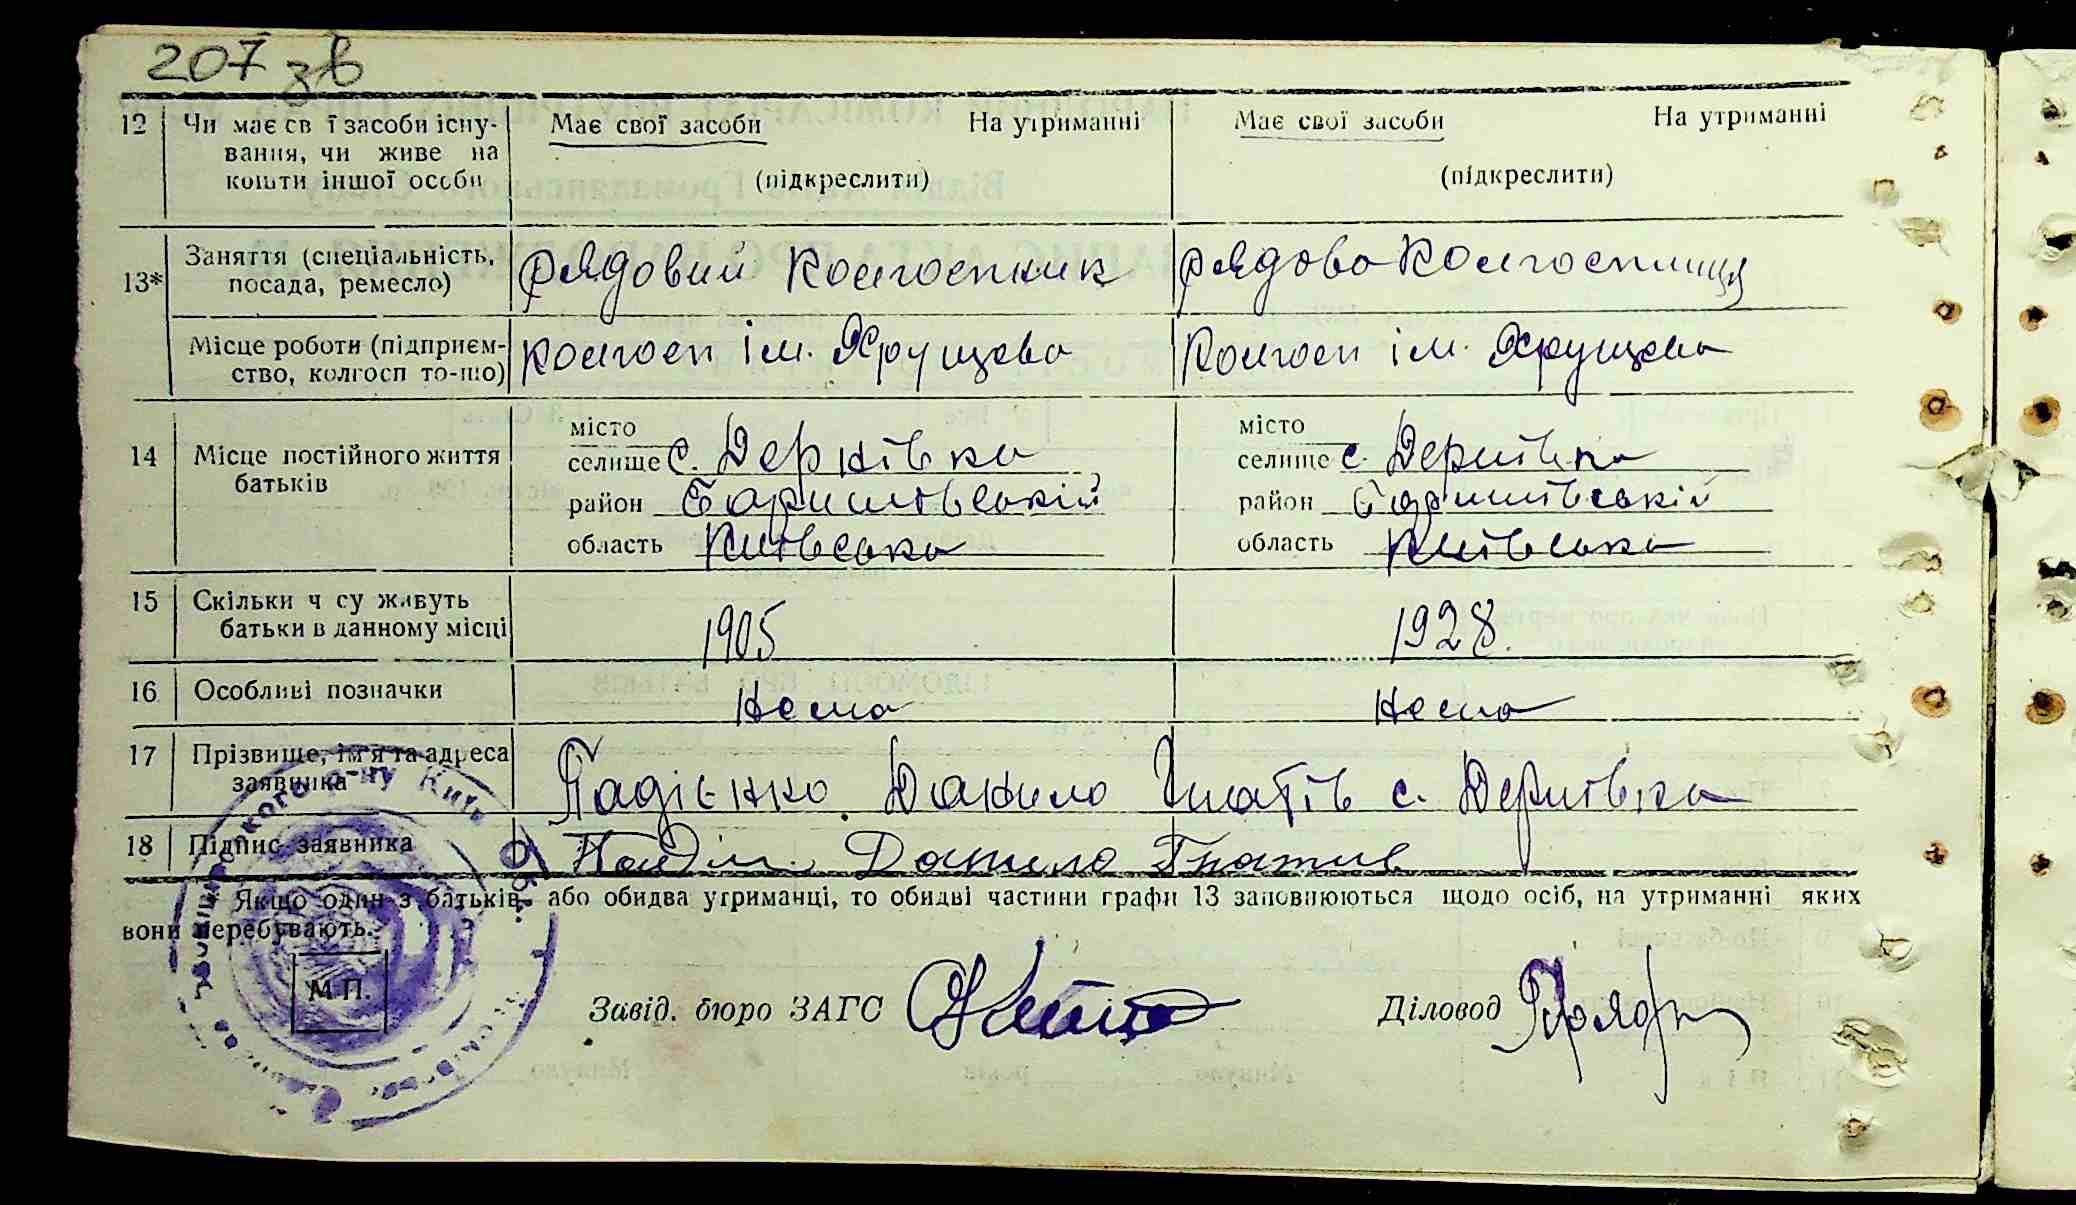 207 зв
12 Чи має св ї засоби існу- Має свої засоби На утриманні Має свої засоби На утриманні
вання, чи живе на
кошти іншої особи (підкреслити) (підкреслити)
13* Заняття (спеціальність, рядовий колгоспник рядова колгоспниця
посада, ремесло)
Місце роботи (підприєм- колгосп ім. Хрущова колгосп ім. Хрущова
ство, колгосп то-що)
місто місто
14 Місце постійного життя селище с. Дернівка селище с. Дернівка
батьків район Баришівський район Баришівський
область Київська область Київська
15 Скільки ч су живуть 1905 1928.
батьки в данному місці
16 Особливі позначки Нема Нема
17 Прізвище, ім'я та адреса Падієнко Данило Гнатів с. Дернівка
заявника
18 Підпис заявника Данило Гнатив
Якщо один з батьків, або обидва утриманці, то обидві частини графи 13 заповнюються щодо осіб, на утриманні яких
вони перебувають.
М.П.
Завід. бюро ЗАГС Діловод